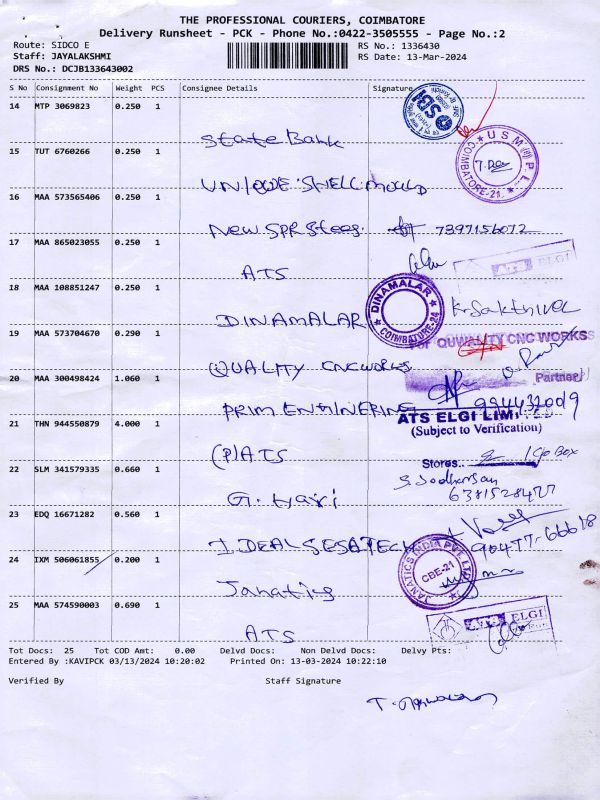 THE PROFESSIONAL COURIERS, COIMBATORE
Delivery Runsheet - PCK - Phone No.:0422-3505555 - Page No.:2
Route: SIDCO E
RS No.: 1336430
Staff: JAYALAKSHMI
RS Date: 13-Mar-2024
DRS No.: DCJB133643002
S No Consignment No Weight PCS Consignee Details Signature
14 MTP 3069823 0.250 1
State Bank
SBI
15 TUT 6760266 0.250 1
USM (I) P. L.
COIMBATORE-21
16 MAA 573565406 0.250 1
New SPR Stees. 7397156072
17 MAA 865023055 0.250 1
ATS
ELGI
18 MAA 108851247 0.250 1
DINAMALAR
DINAMALAR
COIMBATORE-24
K. Sakthivel
19 MAA 573704670 0.290 1
For QUWALITY CNC WORKS
QUALITY CNC WORKS
20 MAA 300498424 1.060 1
Partner
PRIM ENTINERING
ATS ELGI LIMITED
21 THN 944550879 4.000 1
(Subject to Verification)
(P) ATS
Stores.. 2
22 SLM 341579335 0.660 1
G. Hari
6381528477
23 EDQ 16671282 0.560 1
90477-66618
24 IXM 506061855 0.200 1
JANATICS INDIA PVT LTD
CBE-21
Janatics
25 MAA 574590003 0.690 1
ATS
ELGI
Tot Docs: 25 Tot COD Amt: 0.00 Delvd Docs: Non Delvd Docs: Delvy Pts:
Entered By :KAVIPCK 03/13/2024 10:20:02 Printed On: 13-03-2024 10:22:10
Verified By Staff Signature